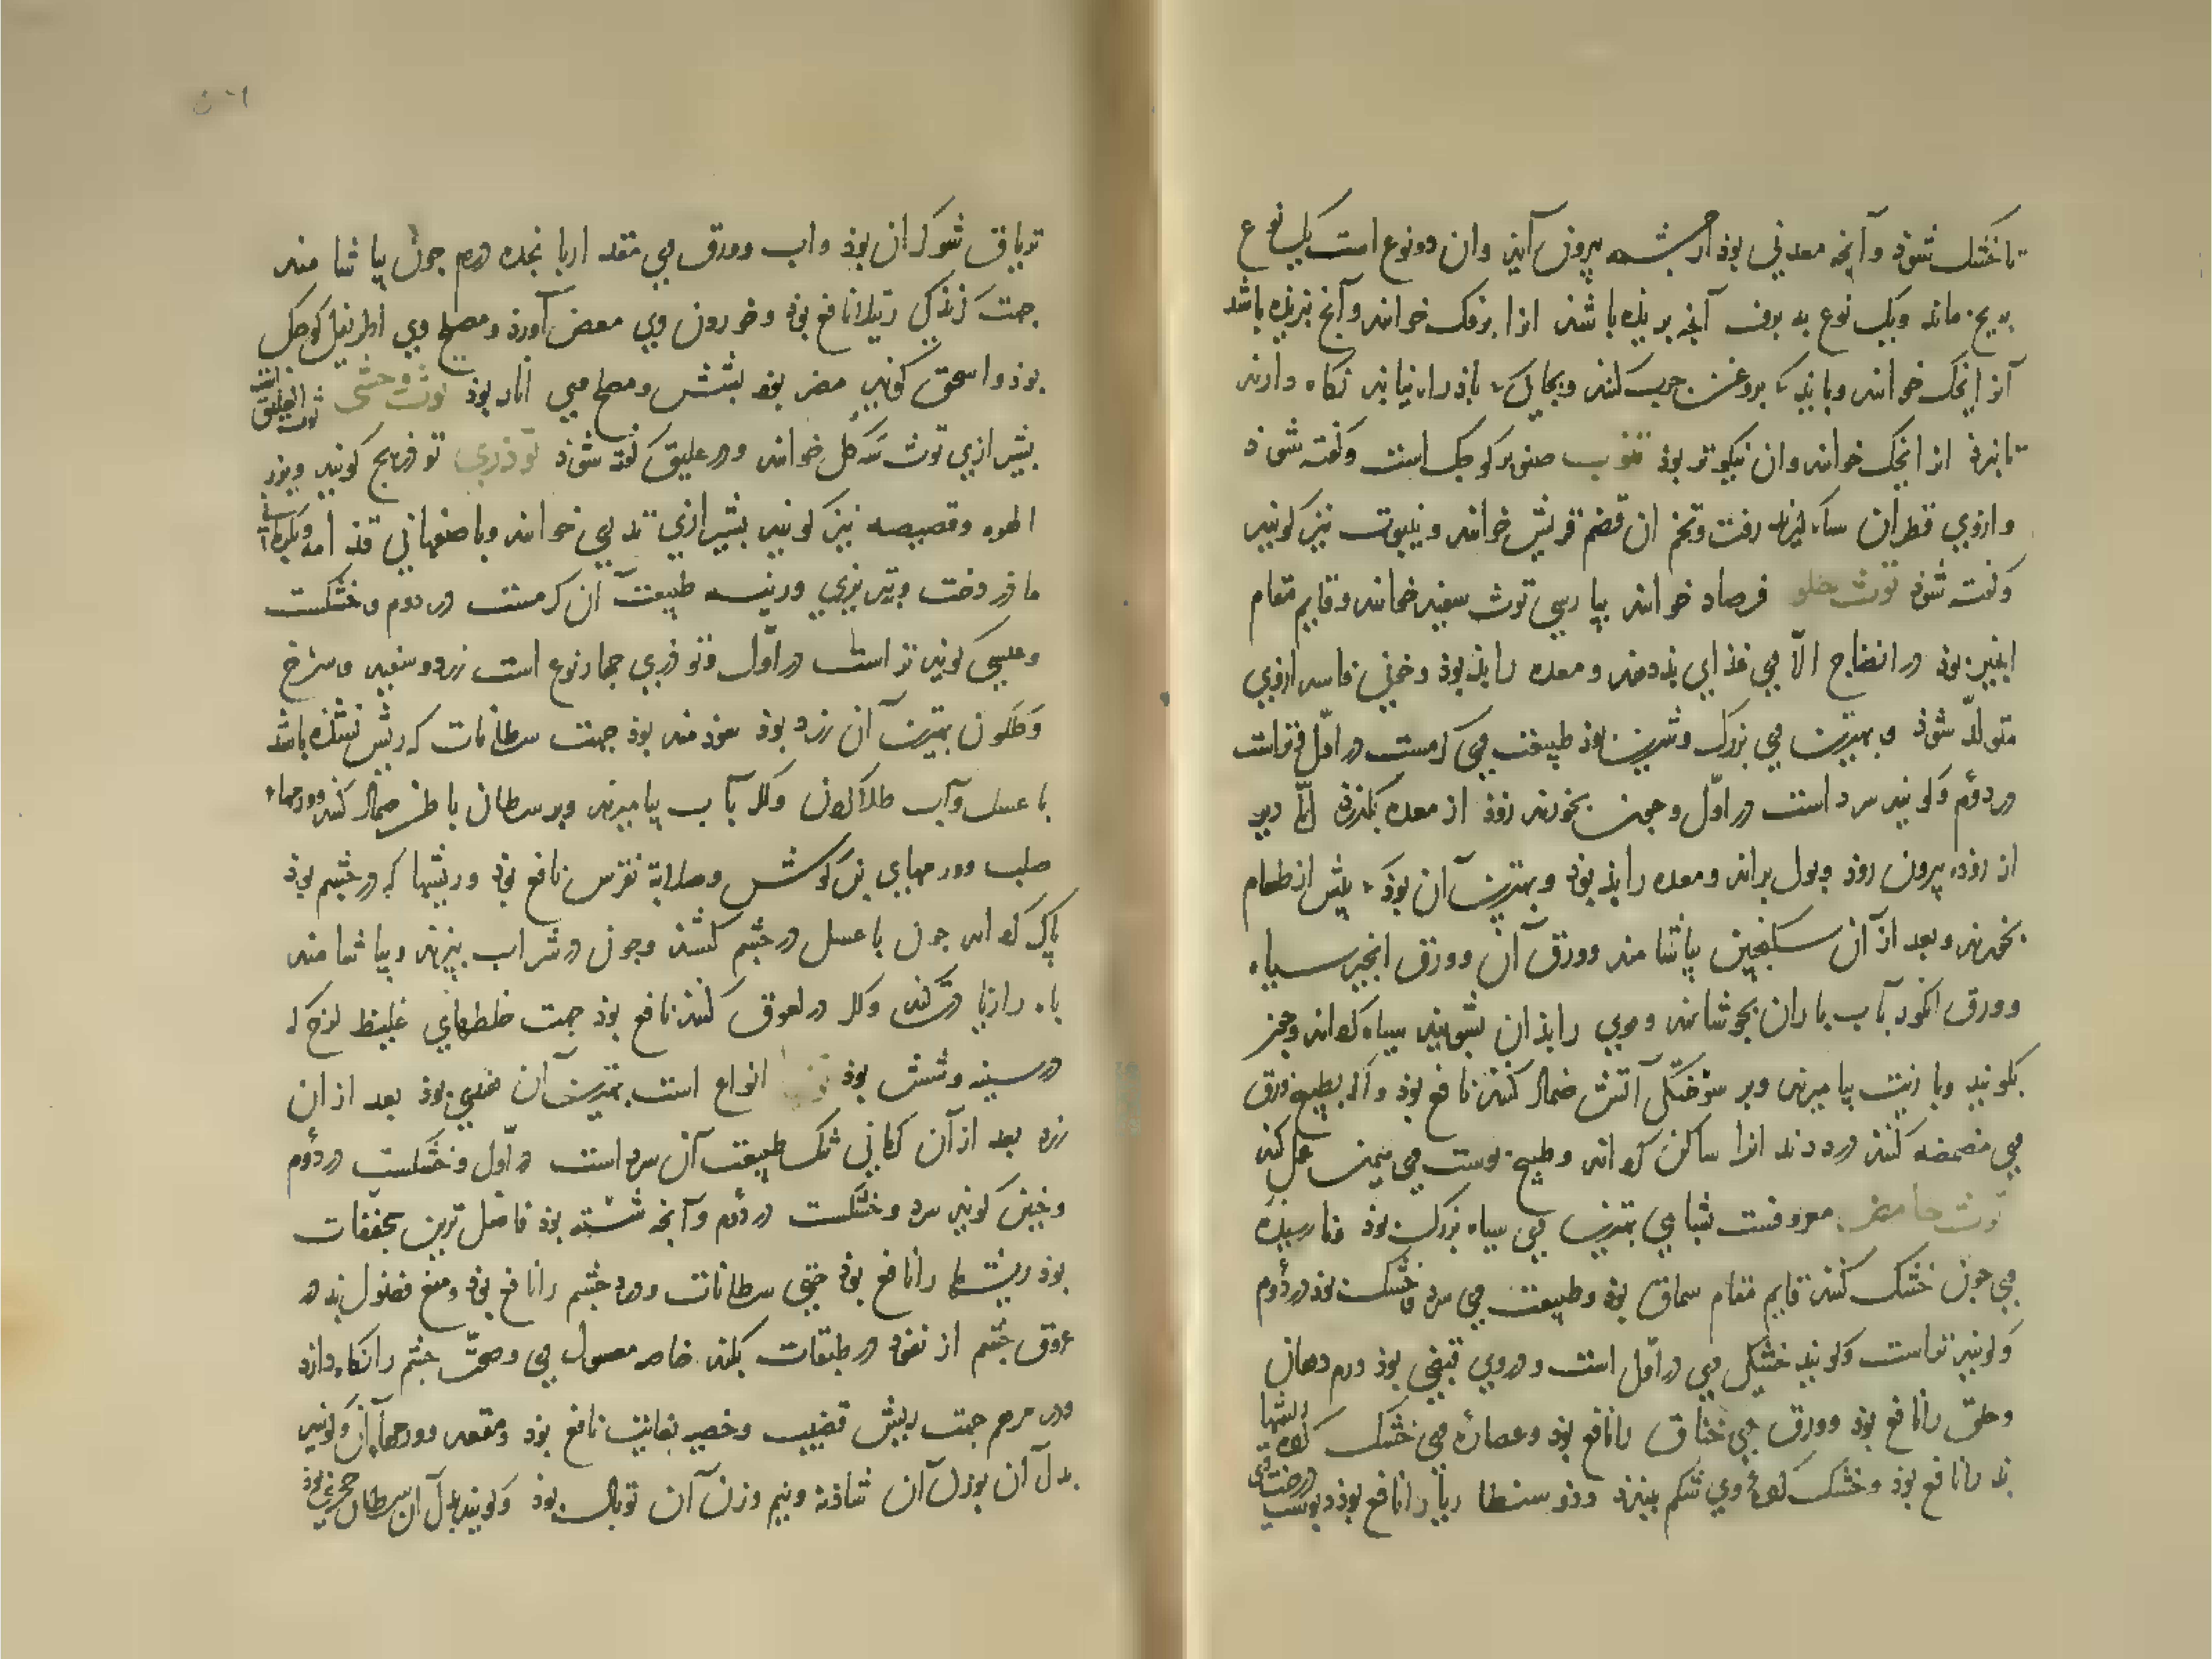 تا خشک شوذ و آنچه معدنی بوذ از چشمه بیرون آید و ان دو نوع است یک نوع
به یخ ماند و یک نوع به برف آنچه بریده باشند انرا خوانند و آنچ نبریده باشد
آنرا خوانند و باید که بروغن چرب کنند و بجای که باذ در ان نیاید نگاه دارند
تا نبرد انرا خوانند و ان نیکوتر بوذ تنوب صنوبر کوچک است و گفته شوذ
و ازوی قطران سیاه گیرند زفت و تخم ان قضم قریش خوانند و ینبوت نیز گویند
و گفته شوذ توث حلو فرصاد خوانند بپارسی توث سفید خوانند و قایم مقام
انجیر بوذ در انضاج الّا وی غذای بذ دهد و معده را بذ بوذ و خونی فاسد ازوی
متولّد شوذ و بهترین وی بزرک و شیرین بوذ طبیعت وی گرمست در اوّل و تراست
در دوّم و گویند سرد است در اوّل و چون بخورند زوذ از معده بگذرد امّا دیر
از روده بیرون روذ و بول براند و معده را بذ بوذ و بهترین آن بوذ که پیش از طعام
بخورند و بعد از آن سکنجبین بیاشامند و ورق آن و ورق انجیر سیاه
و ورق انگور بآب باران بجوشانند و موی را بذان بشویند سیاه گرداند و چون
بکوبند و با زیت بیامیزند و بر سوختکی آتش ضماد کنند نافع بوذ و اگر بطبیخ ورق
وی مضمضه کنند درد دندان را ساکن گرداند و طبیخ پوست وی همین عمل کند
توث حامض معروفست بشامی بهترین وی سیاه بزرک بوذ و نارسیده
وی چون خشک کنند قایم مقام سماق بوذ و طبیعت وی سرد و خشک بوذ در دوّم
و گویند تراست و گویند خشکی وی در اوّل است و در وی قبضی بوذ ورم دهان
و حلق را نافع بوذ و ورق وی خناق را نافع بوذ و عصاره وی خشک کرده ریشها
بد را نافع بوذ و خشک کرده وی شکم ببندد و ذوسنطاریا را نافع بوذ و پوست درخت وی
تریاق شوکران بوذ و اب ورق وی مقدار پانجده درم چون بیاشامند
جهت گزندگی رتیلا نافع بوذ و خوردن وی مغص آورد و مصلح وی اطریفل کوچک
بوذ و اسحق گوید مضر بوذ بشش و مصلح وی انار بوذ توث وحشی ثمرة العلیق است
بشیرازی توث سه گل خوانند و در علیق گفته شوذ توذری توذریج گویند و بزر
الهوه و قصیصه نیز گویند بشیرازی تدری خوانند و باصفهانی قدامه
مادر دخت و تبریزی طبیعت آن گرمست در دوم و خشکست
و عیسی گوید تر است در اوّل و توذری چهار نوع است زرد و سفید و سرخ
و گلگون بهترین آن زرد بوذ سوذمند بوذ جهت سرطانات که ریش نشده باشد
با عسل و آب طلا کردن و اگر بآب بیامیزند و بر سرطان باطن ضماد کنند و ورمهاء
صلب و ورمهای بن گوش و صلابة نقرس نافع بوذ و ریشها که در چشم بوذ
پاک گرداند چون با عسل در چشم کشند و چون در شراب بپزند و بیاشامند
باه را زیادت کند و اگر در لعوق کنند نافع بوذ جهت خلطهای غلیظ لزج که
در سینه و شش بوذ توتیا انواع است بهترین آن هندی بوذ بعد از ان
زرد بعد از آن کرمانی تنک طبیعت آن سرد است در اوّل و خشکست در دوّم
و حنین گوید سرد و خشکست در دوّم و آنچه شسته بوذ فاضل ترین مجففات
بوذ ریشها را نافع بوذ حتی سرطانات و درد چشم را نافع بوذ و منع فضول بد در
عروق چشم از نفوذ در طبقات بکند خاصه مغسول وی و صحّت چشم را نگاه دارد
و در مرهم جهت ریش قضیب و خصیه بغایت نافع بوذ و مقعد و ورمها آن و گویند
بدل آن بوزن آن شاذنه و نیم وزن آن توبال بوذ و گویند بدل آن سرطان بحری بوذ